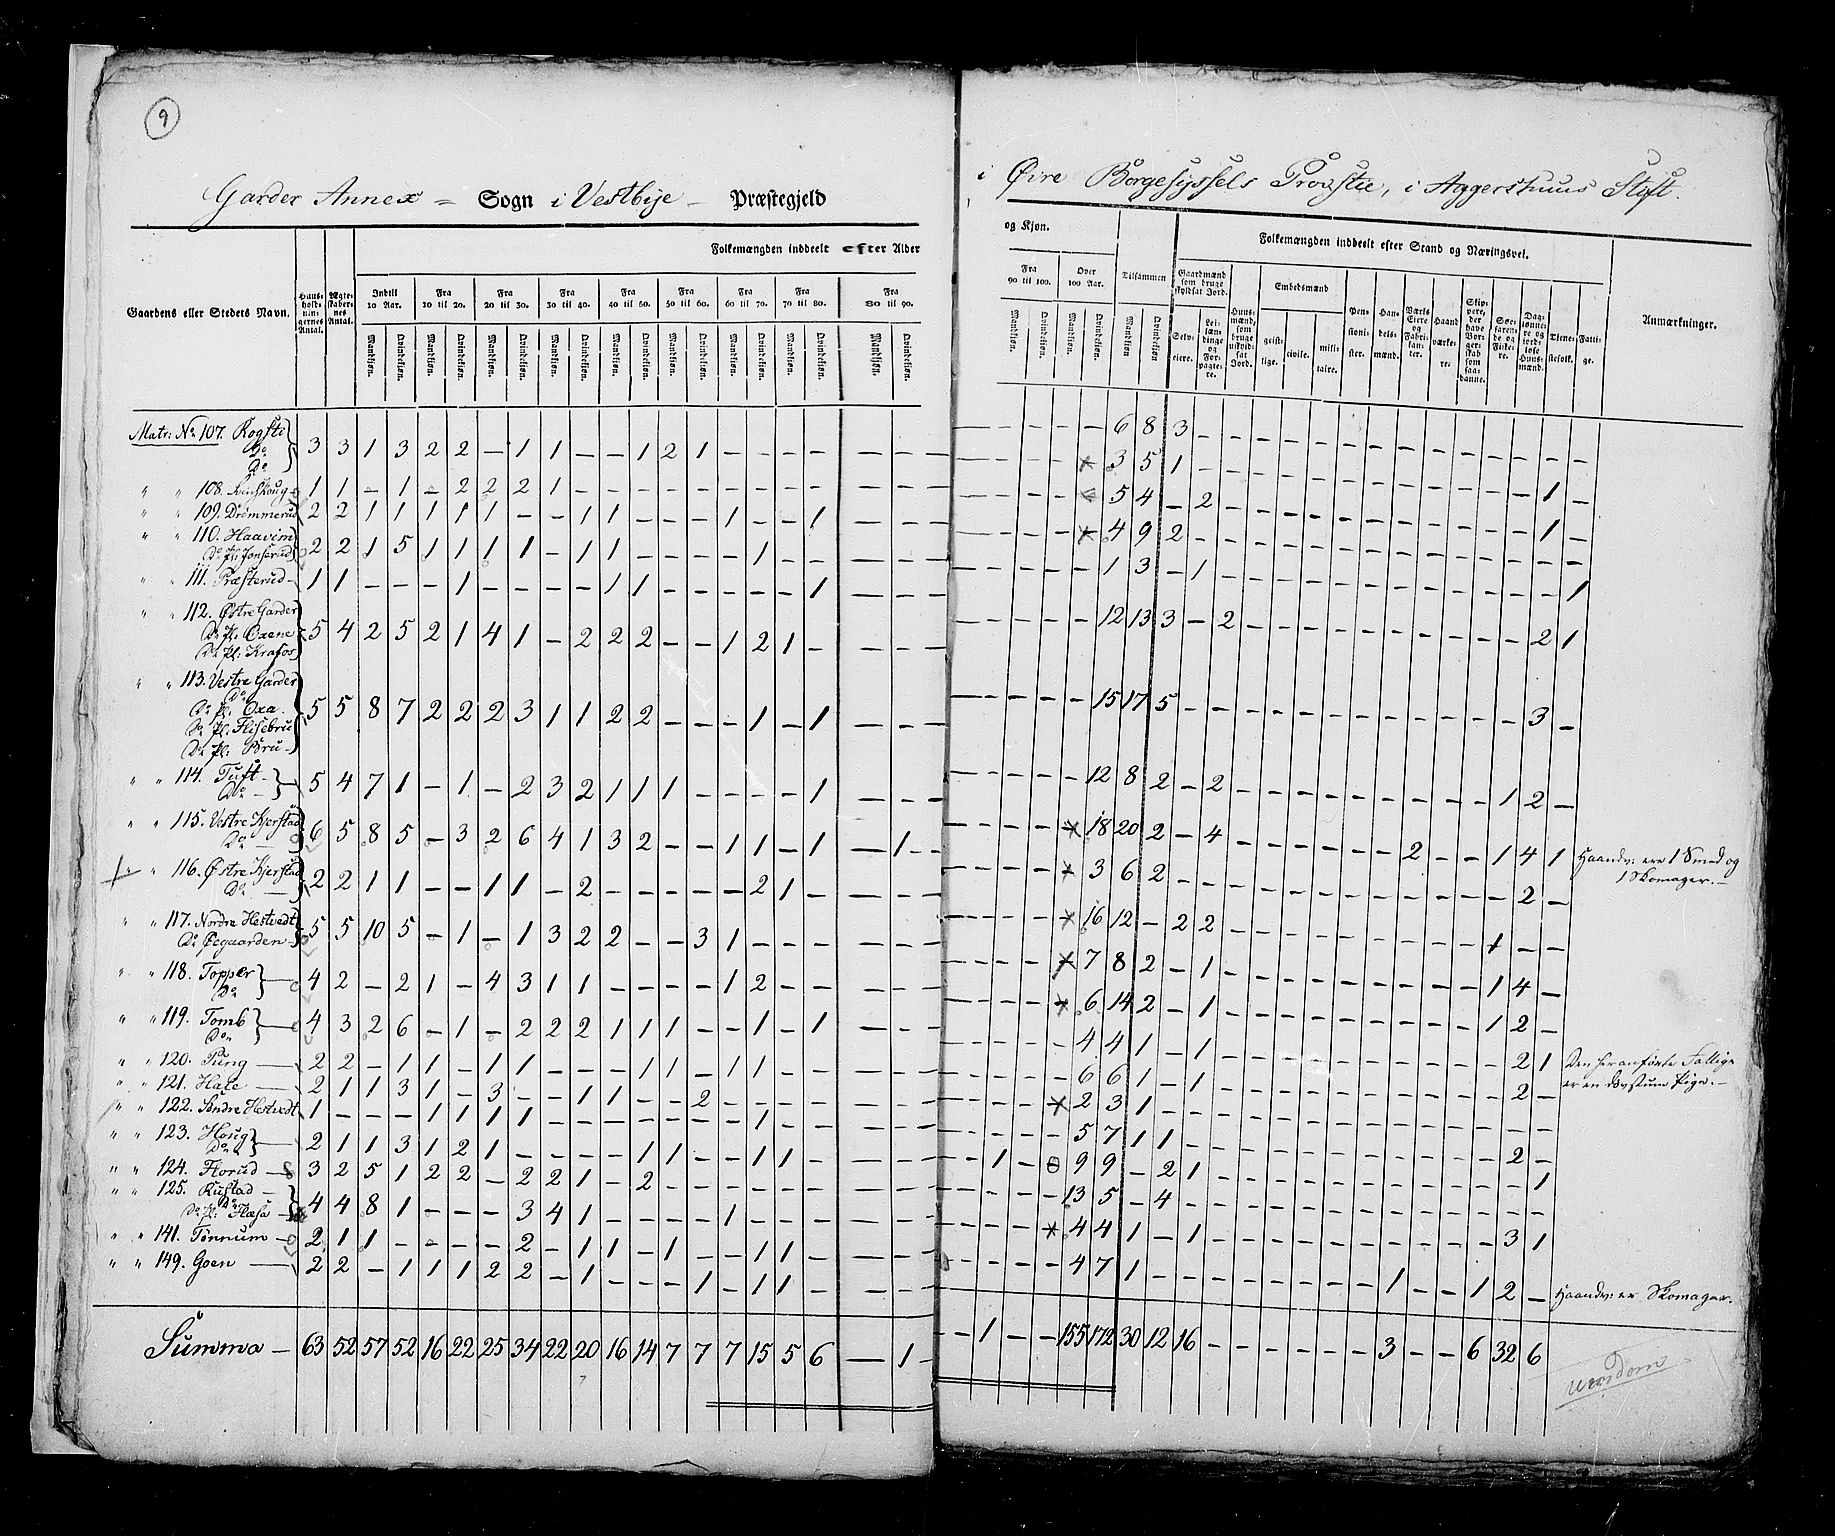 9
Garder Annex = Sogn i Vestbÿe - Præstegjeld
i Øvre Borgesÿssels Provstie, i Aggershuus Stift.
Gaardens eller Steders Navn.
Huusholdningernes Antal.
Ægteskabernes Antal.
Folkemængden inddeelt efter Alder og Kjøn.
Indtil 10 Aar. Fra 10 til 20. Fra 20 til 30. Fra 30 til 40. Fra 40 til 50. Fra 50 til 60. Fra 60 til 70. Fra 70 til 80. Fra 80 til 90. Fra 90 til 100. Over 100 Aar. Tilsammen
Mandkiøn. Qvindekiøn.
Folkemængden inddeelt efter Stand og Næringsvei.
Gaardmænd som bruge skyldsat Jord.
Selveiere.
Leilændinge og Forpagtere.
Huusmænd, som bruge uskyldsat Jord.
Embedsmænd
geistlige. civile. militaire.
Pensionister.
Handelsmænd.
Værks Eiere og Fabrikanter.
Haandværkere.
Skippere, der have Borgerskab som saadanne.
Søefarende og Fiskere.
Dagleiere og jordløse Huusmænd.
Tjenestefolk.
Fattige.
Anmærkninger.
Matr: No 107. Rogsti 3 3 1 3 2 2 - 1 1 - - 1 2 1 - - - - - - - - - - 6 8 3
Do
Do
" " 108. Svinskoug 1 1 - 1 - 2 2 2 1 - - - - - - - - - 3 5 1
" " 109. Drømmerud 2 2 1 1 1 1 1 - - 1 1 - - - 1 - - 1 5 4 - 2 1 -
" " 110. Haavim
Do Pl: Jonserud 2 2 1 5 1 1 1 1 - 1 1 - - - - 1 - - 4 9 2 1 -
" " 111. Præsterud 1 1 - - - 1 - - - - 1 1 - - - - - 1 1 3 - 1 1
" " 112. Østre Garder
Do Pl: Oxene 5 4 2 5 2 1 4 1 - 2 2 2 - - 1 2 1 - 12 13 3 - 2 2 1
Do Pl: Krafos
" " 113. Vestre Garder
Do
Do Pl: Oxa. 5 5 8 7 2 2 2 3 1 1 2 2 - - - 1 - 1 15 17 5 3 -
Do Pl: Flisebru
Do Pl: Bru
" " 114. Tuft 5 4 7 1 - 1 - 2 3 2 1 1 1 - - - - 1 12 8 2 - 2 1 2 -
Do
" " 115. Vestre Kjerstad 6 5 8 5 - 3 2 6 4 1 3 2 - - 1 1 - 1 - 1 - 18 20 2 - 4 2 - - 1 4 1 Haandv: ere 1 Smed og
Do 1 Skomager.
" " 116. Østre Kjerstad 2 2 1 1 - - 1 1 - 2 - - - - - 2 1 - 3 6 2 2 -
Do
" " 117. Nordre Hestvedt 5 5 10 5 - 1 - 1 3 2 2 - - 3 1 - - - 16 12 - 2 2 1 - -
Do Øegaarden
" " 118. Topper 4 2 - 2 1 - 4 3 1 1 - - - - 1 2 - - 7 8 2 - 1 1 4 -
Do
" " 119. Tomb 4 3 2 6 - 1 - 2 2 2 1 1 1 - - 1 - 1 6 14 2 - 1 1 2 -
Do
" " 120. Pung 2 2 - 1 1 - 1 1 - - - 1 1 - 1 1 - - 4 4 1 - 1 2 1 Den her anførte Fattige
" " 121. Hale 2 1 1 3 1 - 3 - - 1 1 - - 2 - - - - 6 6 1 - 1 2 - er en døvstum Pige.
" " 122. Søndre Hestvedt 1 - - - 1 1 1 1 - - - - - - - 1 - - 2 3 1
" " 123. Houg 2 1 1 3 1 2 1 - - - - 1 1 - 1 1 - - 5 7 1 1 2 -
Do
" " 124. Florud 3 2 5 1 2 2 - 2 2 1 - 2 - - - - - - 1 - 9 9 - 2 1 1
" " 125. Rustad
Do Pl: Flæsa 4 4 8 1 - - - 3 4 1 - - - - 1 - - - 13 5 - 4
" " 141. Tønnum 2 1 1 - - - - 2 - 1 1 - 1 - - 1 1 - 4 4 1 - 1 3 1
" " 149. Goen 2 2 - 1 1 1 2 2 - 1 - - - 1 - 1 1 - 4 7 1 1 - - 1 2 - Haandv: er Skomager.
Summa 63 52 57 52 16 22 25 34 22 20 16 14 7 7 7 15 5 6 - 1 - - 1 - - 155 172 30 12 16 - - - - - - 3 - - 6 32 6